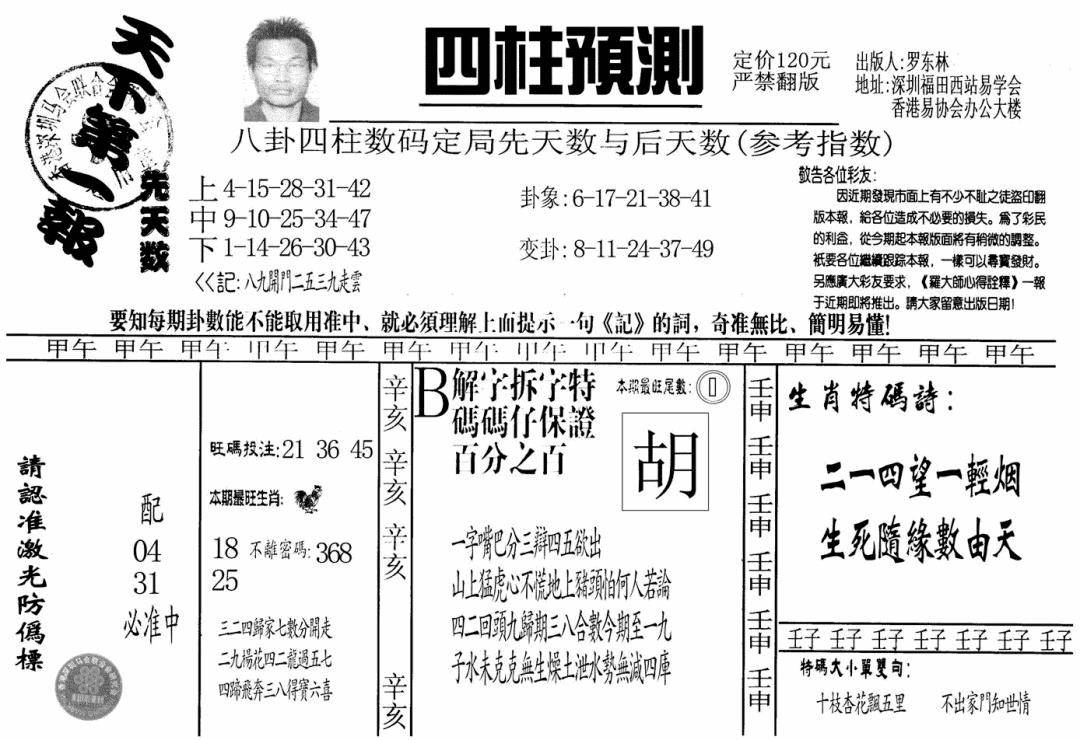 天下第一報
四柱預測
定价120元
严禁翻版
出版人:罗东林
地址:深圳福田西站易学会
香港易协会办公大楼
八卦四柱数码定局先天数与后天数(参考指数)
先天数
上4-15-28-31-42
中9-10-25-34-47
下1-14-26-30-43
<<記:八九開門二五三九走雲
卦象:6-17-21-38-41
变卦:8-11-24-37-49
敬告各位彩友:
因近期發現市面上有不少不耻之徒盜印翻
版本報,給各位造成不必要的損失。爲了彩民
的利益,從今期起本報版面將有稍微的調整。
衹要各位繼續跟踪本報,一樣可以尋寶發財。
另應廣大彩友要求,《羅大師心得詮釋》一報
于近期即將推出。請大家留意出版日期!
要知每期卦數能不能取用准中、就必須理解上面提示一句《記》的詞,奇准無比、簡明易懂!
甲午 甲午 甲午 甲午 甲午 甲午 甲午 甲午 甲午 甲午 甲午 甲午 甲午 甲午 甲午
請認准激光防僞標
配
04
31
必准中
旺碼投注:21 36 45
本期最旺生肖:
18 不離密碼:368
25
三二四歸家七數分開走
二九楊花四二龍過五七
四蹄飛奔三八得寶六喜
辛亥 辛亥 辛亥 辛亥
B解字拆字特
碼碼仔保證
百分之百
本期最旺尾數:0
胡
一字嘴巴分三辯四五欲出
山上猛虎心不慌地上豬頭怕何人若論
四二回頭九歸期三八合數今期至一九
子水未克克無生燥土泄水勢無減四庫
壬申 壬申 壬申 壬申 壬申 壬申
生肖特碼詩:
二一四望一輕烟
生死隨緣數由天
壬子 壬子 壬子 壬子 壬子 壬子 壬子
特碼大小單雙句:
十枝杏花飄五里 不出家門知世情